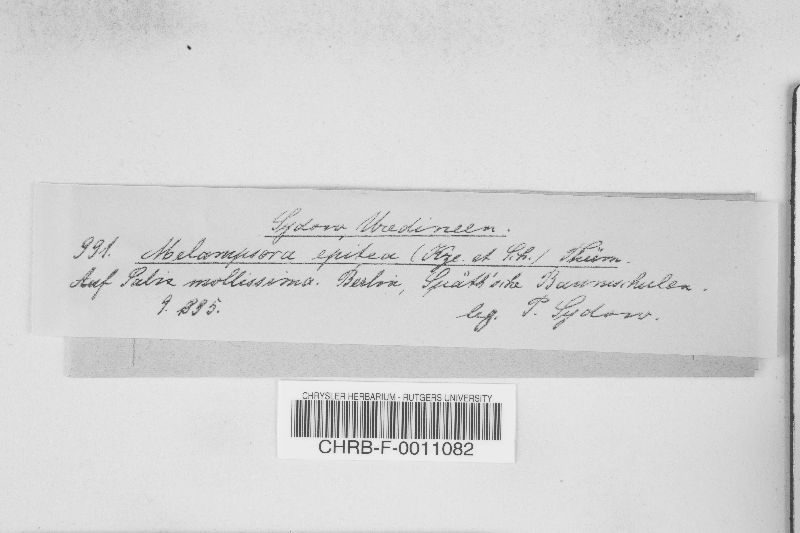 Sydow, Uredineen.
991. Melampsora epitea (Kze. et Sch.) Thüm.
Auf Salix mollissima. Berlin, Späth'sche Baumschulen.
9. 1895.
leg. P. Sydow.
CHRYSLER HERBARIUM - RUTGERS UNIVERSITY
CHRB-F-0011082